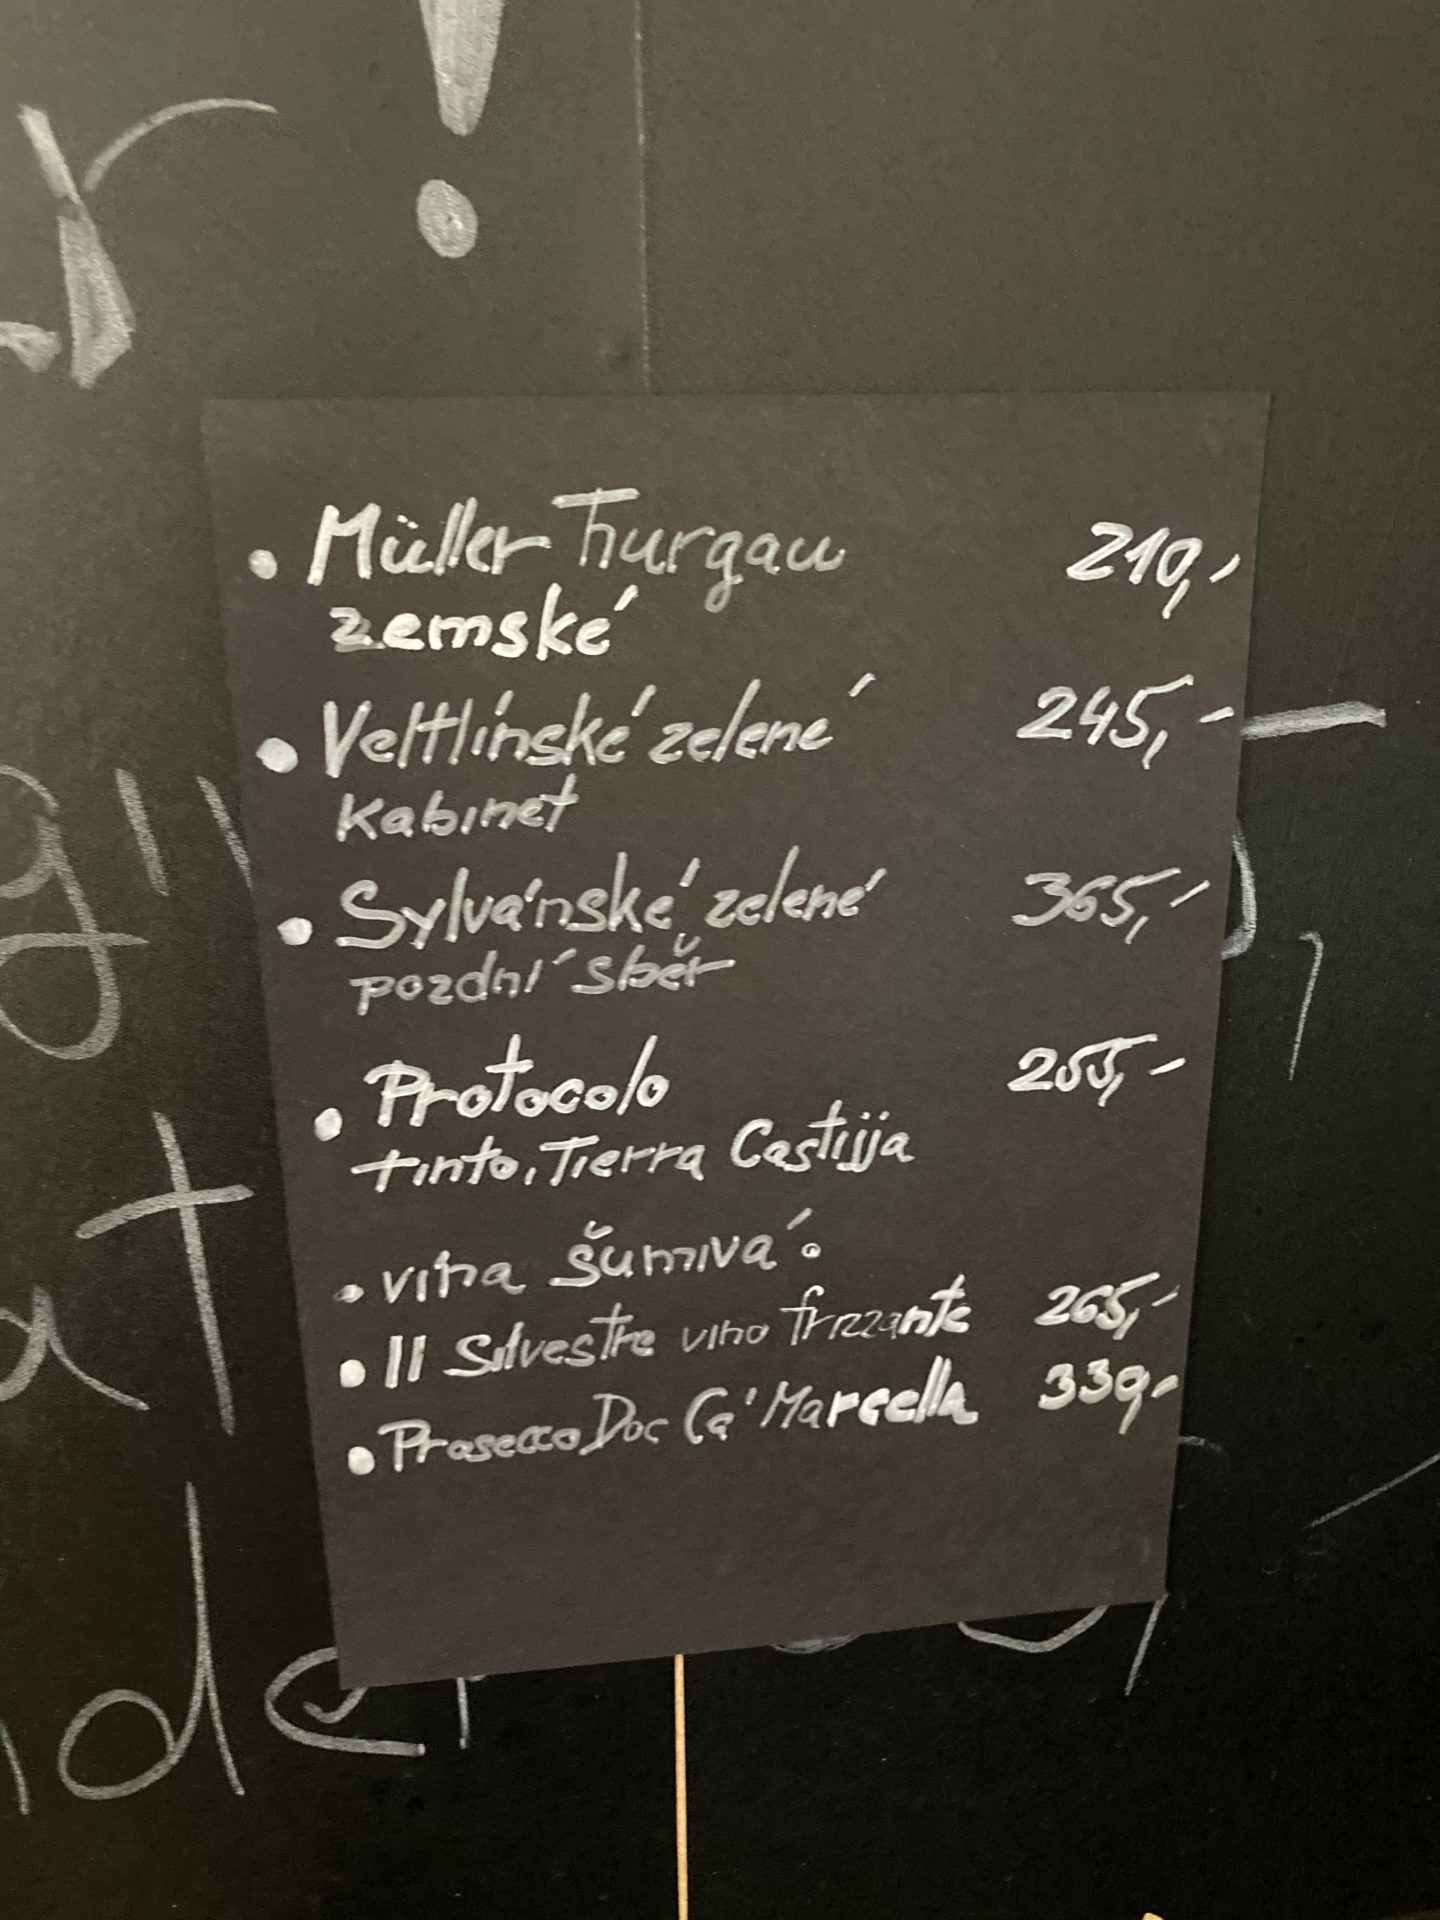 • Müller Thurgau 210,-
zemské
• Veltlínské zelené 245,-
kabinet
• Sylvánské zelené 365,-
pozdní sběr
• Protocolo 255,-
tinto, Tierra Castijja
• vína šumivá:
• Il Silvestre vino frizzante 265,-
• Prosecco Doc Ca' Marcella 339,-